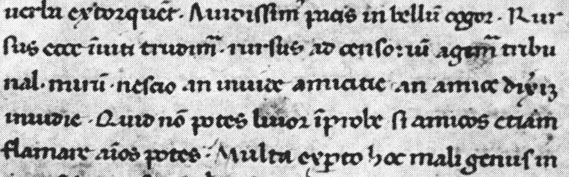 uerba extorquēt. Auidissimꝰ pacis in bellū cogor. Rur
sus ecce īuiti trudimꝰ. rursus ad censoriū agimꝰ tribu
nal. mirū. nescio an inuide amicitie. an amice dixꝭ
inuidie. Quid nō potes liuor īprobe si amicos etiam
flamare aīos potes. Multa exꝑto hoc mali genus in